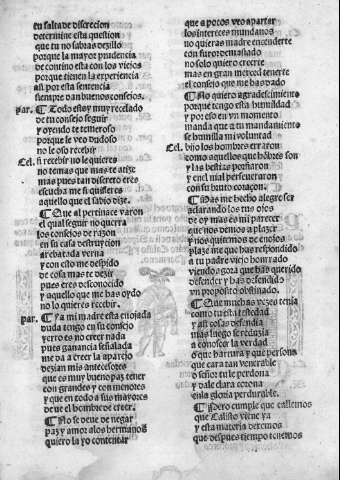 tu falta de discrecion
determine esta question
que tu no sabras dezillo
porque la mayor prudencia
de contino esta con los viejos
porque tienen la experiencia
assi por esta sentencia
siempre dan buenos consejos.
par. ¶ Todo estoy muy recelado
de tu consejo seguir
y oyendo te temeroso
porque le veo dudoso
no le oso recebir
Cel. si recebir no le quieres
no temas que mas te atize
mas pues tan discreto eres
escucha me si quisieres
aquello que el sabio dize.
¶ Que al pertinace varon
el qual seguir no querra
los consejos de razon
en su casa destruycion
arrebatada verna
y con esto me despido
de cosa mas te dezir
pues eres desconocido
y aquello que me has oydo
no lo quieres recebir.
par. ¶ Ya mi madre esta enojada
duda tengo en su consejo
yerro es no creer nada
pues ganancia señalada
me da a creer la aparejo
dezian mis antecessores
que es muy bueno paz tener
con grandes y con menores
y que en todo a sus mayores
deue el hombre de creer.
¶ No se deue de negar
paz y amor a los hermanos
quiero la yo contentar
que a pocos veo apartar
los interces mundanos
no quieras madre encenderte
con furor demasiado
no solo quiero creerte
mas en gran merced tenerte
el consejo que me has dado
¶ No quiero agradescimiento
porque tengo esta humildad
y por esso en vn momento
manda que a tu mandamiento
se humilla mi voluntad
Cel. hijo los hombres erraron
como aquellos que hõbres son
y las bestias porfiaron
y en el mal perseueraron
con su bruto coraçon.
¶ Mas me hecho alegre ser
aclarando los tus ojos
de oy mas es mi parecer
que nos demos a plazer
y nos quitemos de enojos
plaze me que has respondido
a tu padre viejo honrrado
viendo
gora que has querido
defender y has defendido
vn proposito obstinado.
¶ Que muchas vezes tenia
como tu esta testedad
y assi cosas defendia
mas luego se reduzia
a conoscer la verdad
o que hartura y que persona
que cara tan venerable
o señor tu le perdona
y dale clara corona
en la gloria perdurable.
¶ Pero cumple que callemos
que Calisto viene ya
y esta materia dexemos
que despues tiempo tenemos